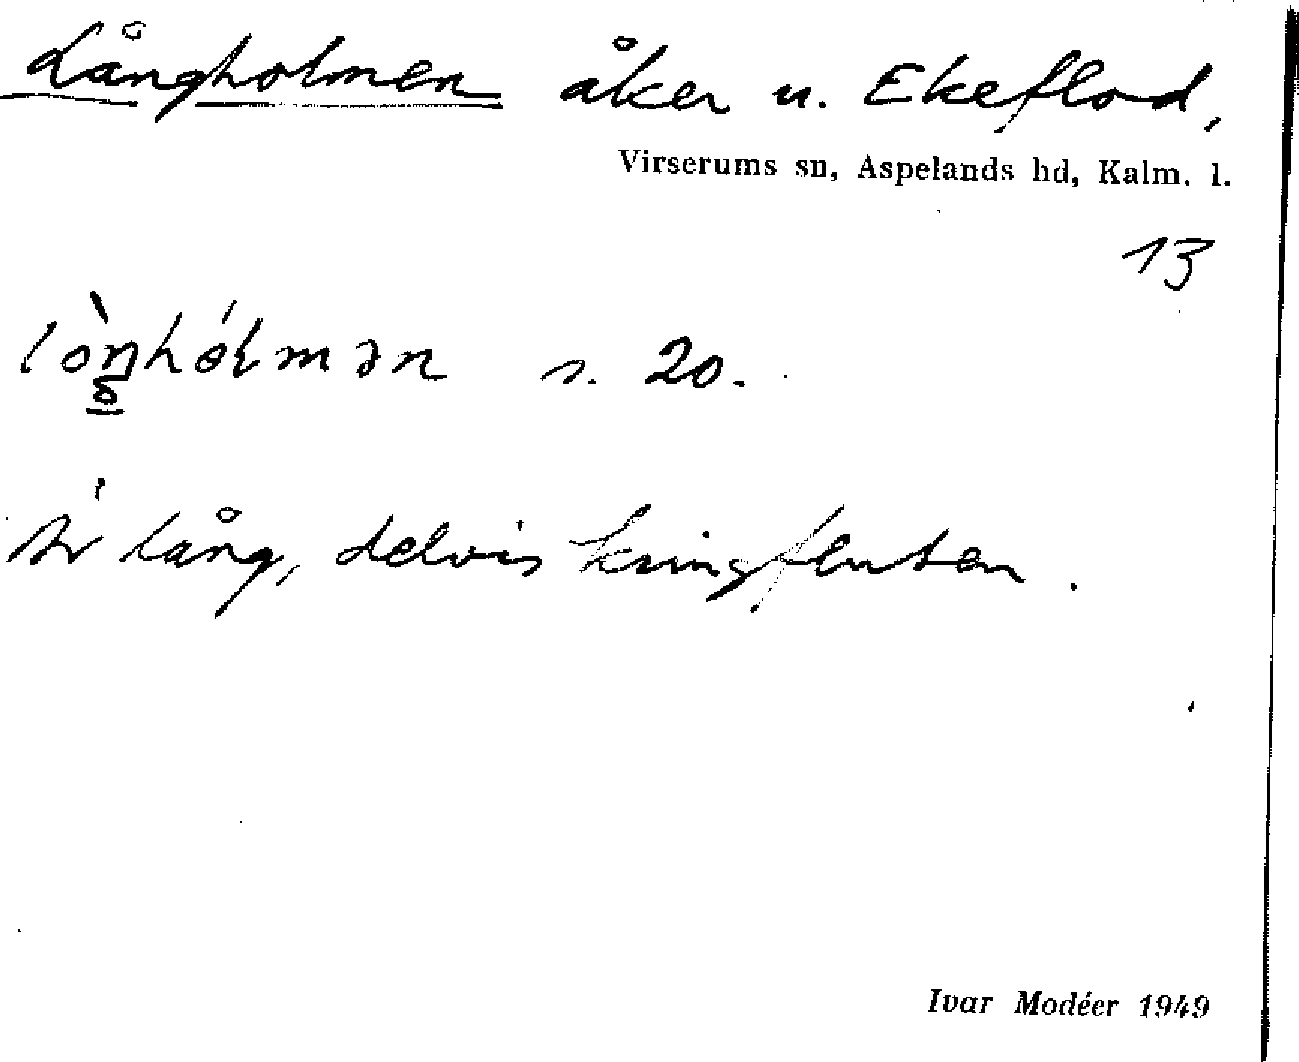 Långholmen åker u. Ekeflod,
Virserums sn, Aspelands hd, Kalm. l.
13
lòŋhólmən s. 20.
Är lång, delvis kringfluten.
Ivar Modéer 1949